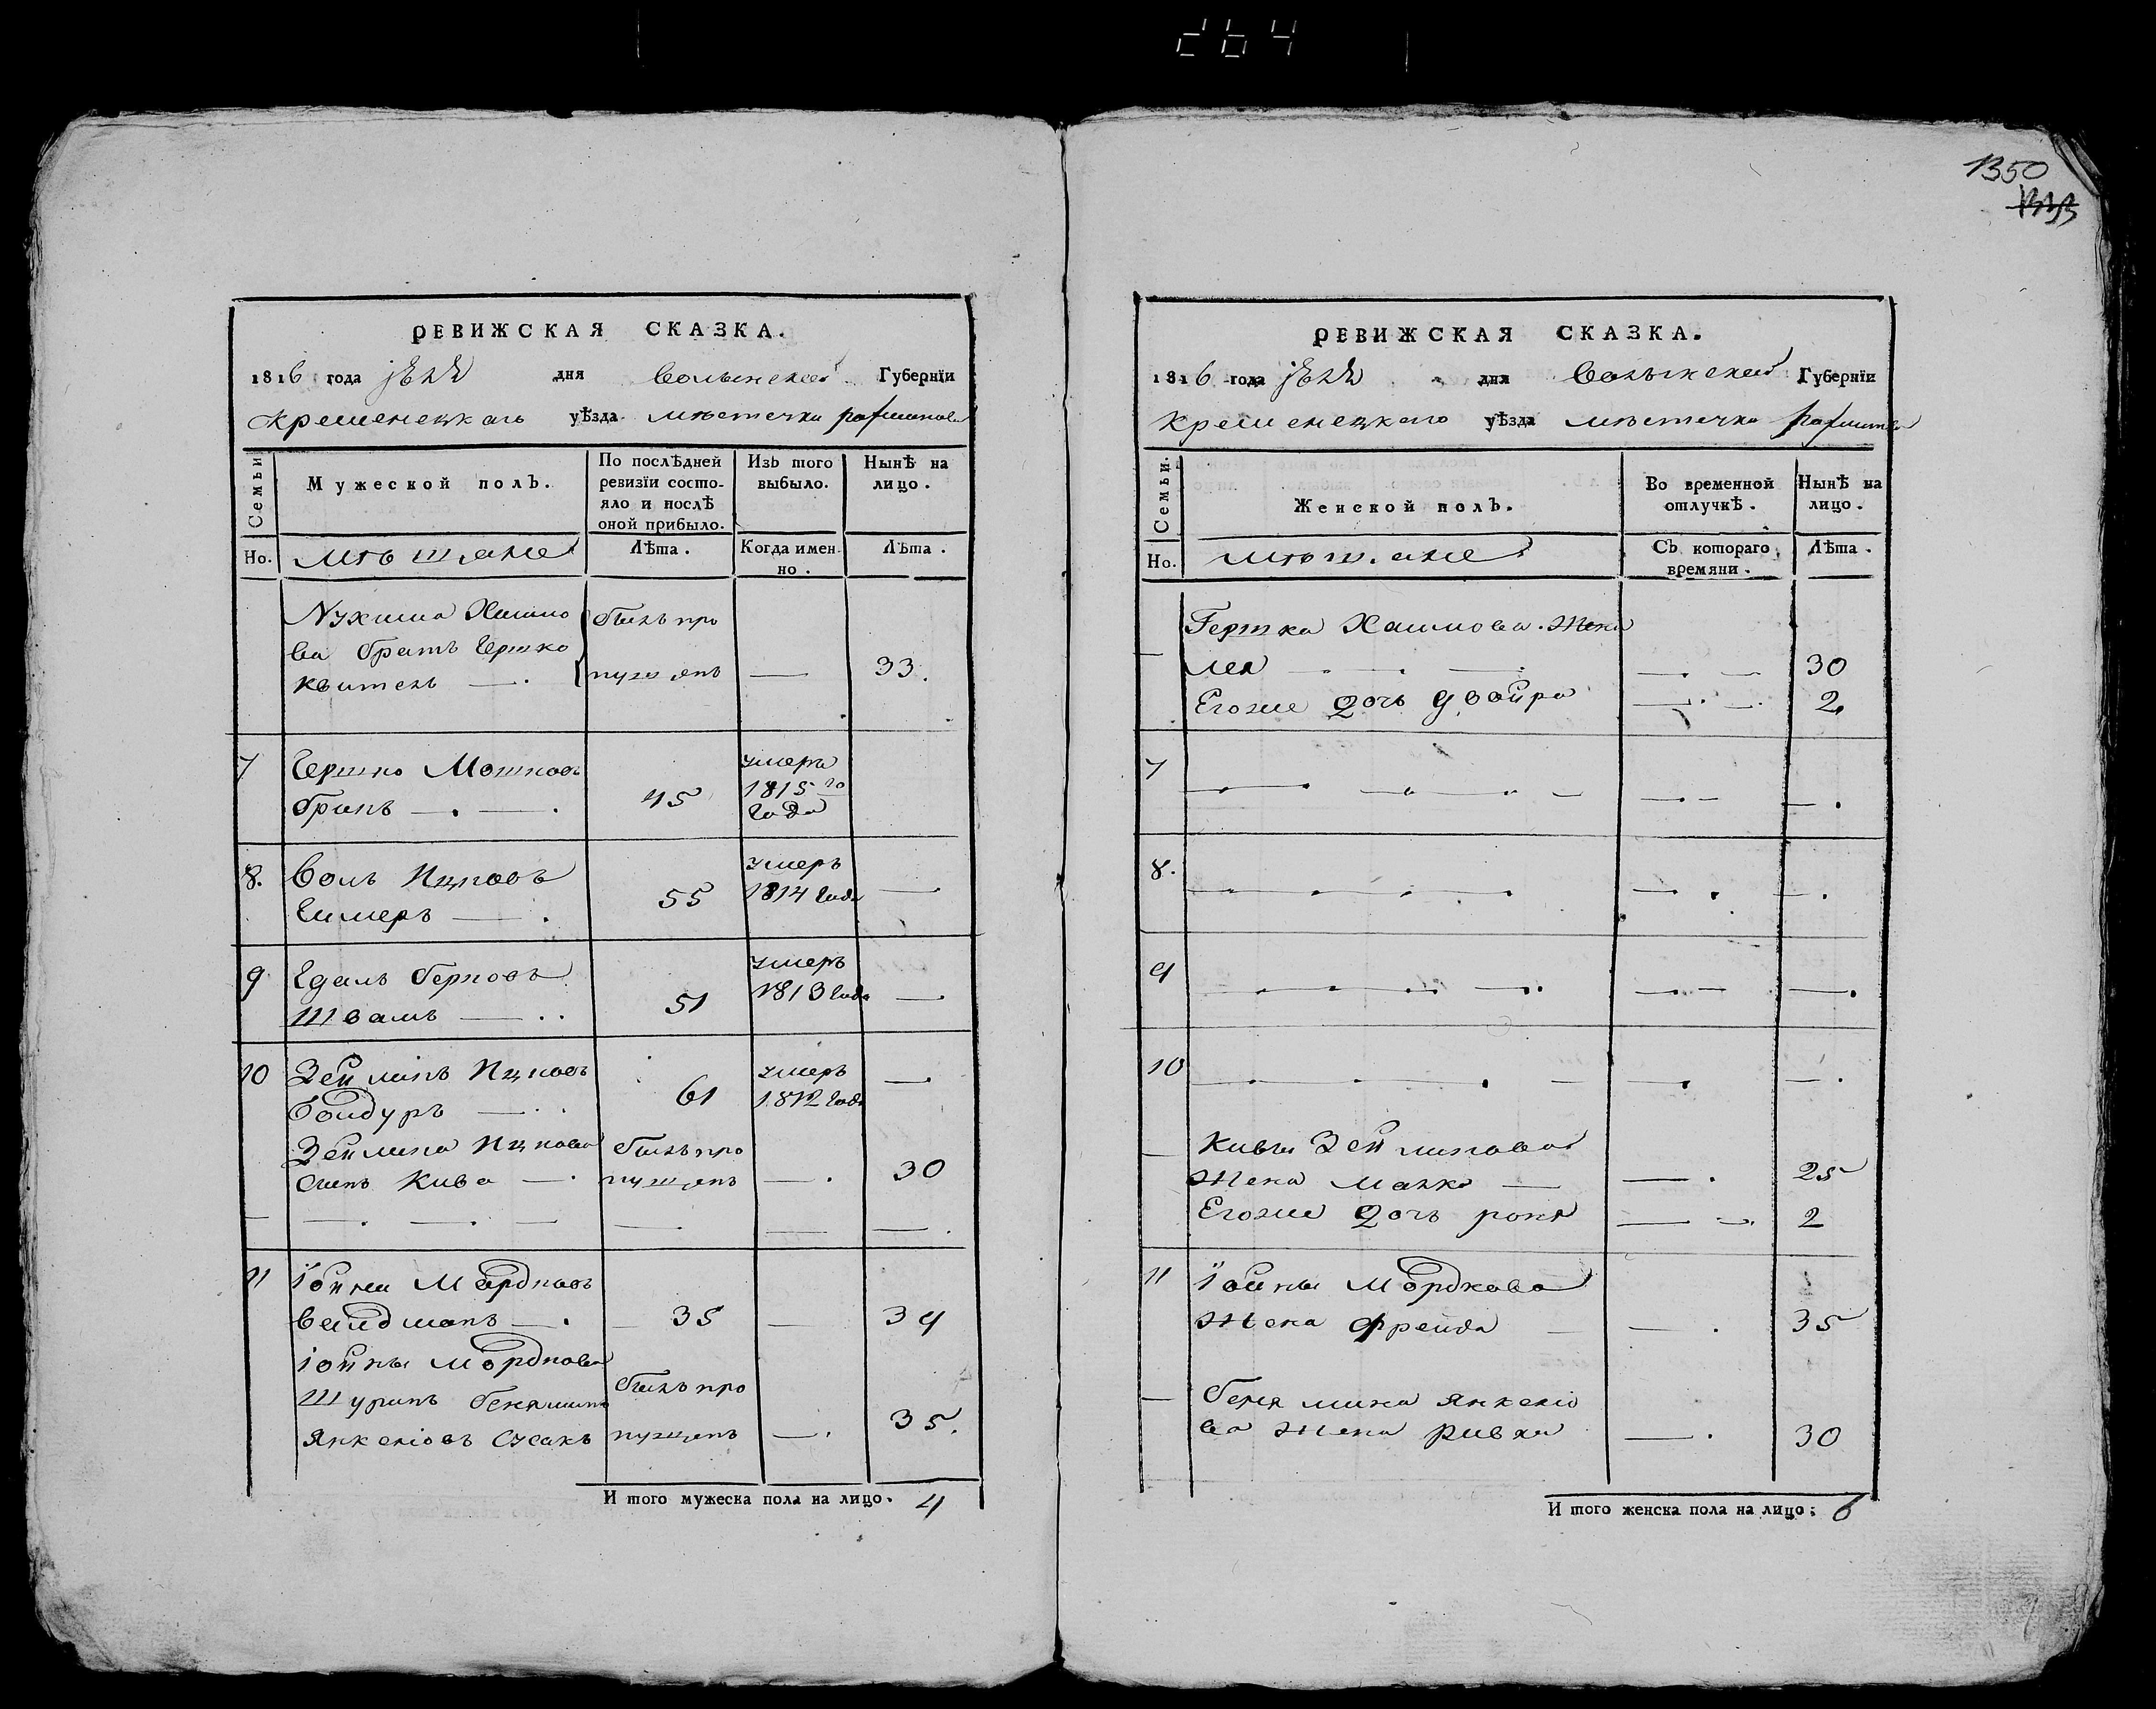 264
1350
РЕВИЖСКАЯ СКАЗКА.
1816 года дня Волынской Губернїи
Кременецкаго уѣзда мѣстечка рахманова
Семьи
Мужеской полЪ.
По послѣдней ревизїи состояло и послѣ оной прибыло.
ИзЪ того выбыло.
Нынѣ на лицо.
Но.
мѣщане
Лѣта.
Когда именно.
Лѣта.
Хаимо
ва братъ Гершко былъ про
пущенъ — 33.
7 Гершко Мошковъ умеръ
45 1815го
года
8. Волъ Ицковъ умеръ
Гимеръ — 55 1814 года —
9 Едаль берковъ умеръ
Шваль — 51 1813 года —
10 Зейликъ Ицковъ умеръ
бондуръ — 61 1812 года —
Зейлика Ицкова былъ про
сынъ Кива — пущенъ — 30
11 Іойна Мордковъ
вандманъ — 35 — 39
Іойны Мордкова
Шуринъ бенямин былъ про
Янкеліовъ Сусакъ пущенъ — 35.
И того мужеска пола на лицо. 4
РЕВИЖСКАЯ СКАЗКА.
1816 года дня Волынской Губернїи
Кременецкаго уѣзда мѣстечка рахманова
Семьи.
Женской полЪ.
Во временной отлучкѣ.
Нынѣ на лицо.
Но.
мѣщане
СЪ котораго времяни.
Лѣта.
Гершка Хаимова Жена
лея — 30
Егоже дочь двойра — 2
7
8.
9
10
Кивы Зейликова
Жена малка — 25
Егоже дочь роня — 2
11 Іойны Мордкова
Жена фрейда — 35
бенямина Янкеліо
ва жена ривка — 30
И того женска пола на лицо; 6